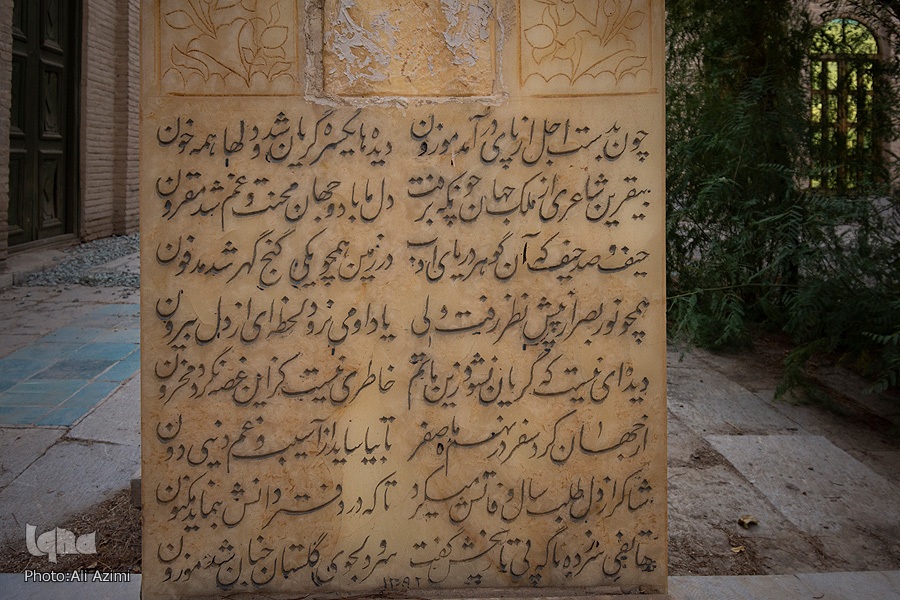 چون بدست اجل از پای در آمد موزون دیده ها یکسره گریان شد و دلها همه خون
بیقرین شاعری از ملک جهان چونکه برفت دل ما با دو جهان محنت و غم شد مقرون
حیف و صد حیف که آن گوهر دریای ادب در زمین همچو یکی گنج گهر شده مدفون
همچو نور بصر از پیش نظر رفت ولی یاد او می نرود لحظه ای از دل بیرون
دیده ای نیست که گریان نشود زین ماتم خاطری نیست کز این غصه نگردد محزون
از جهان کرد سفر در نهم ماه صفر تا بیاساید از آسیب و غم دنیی دون
شاکر از دل طلب سال وفاتش میکرد تا که در دفتر دانش بنماید مکنون
هاتفی مژده بناگه پی تاریخش گفت سرو دلجوی گلستان جنان شد موزون
۱۳۹۲
iqna
Photo:Ali Azimi